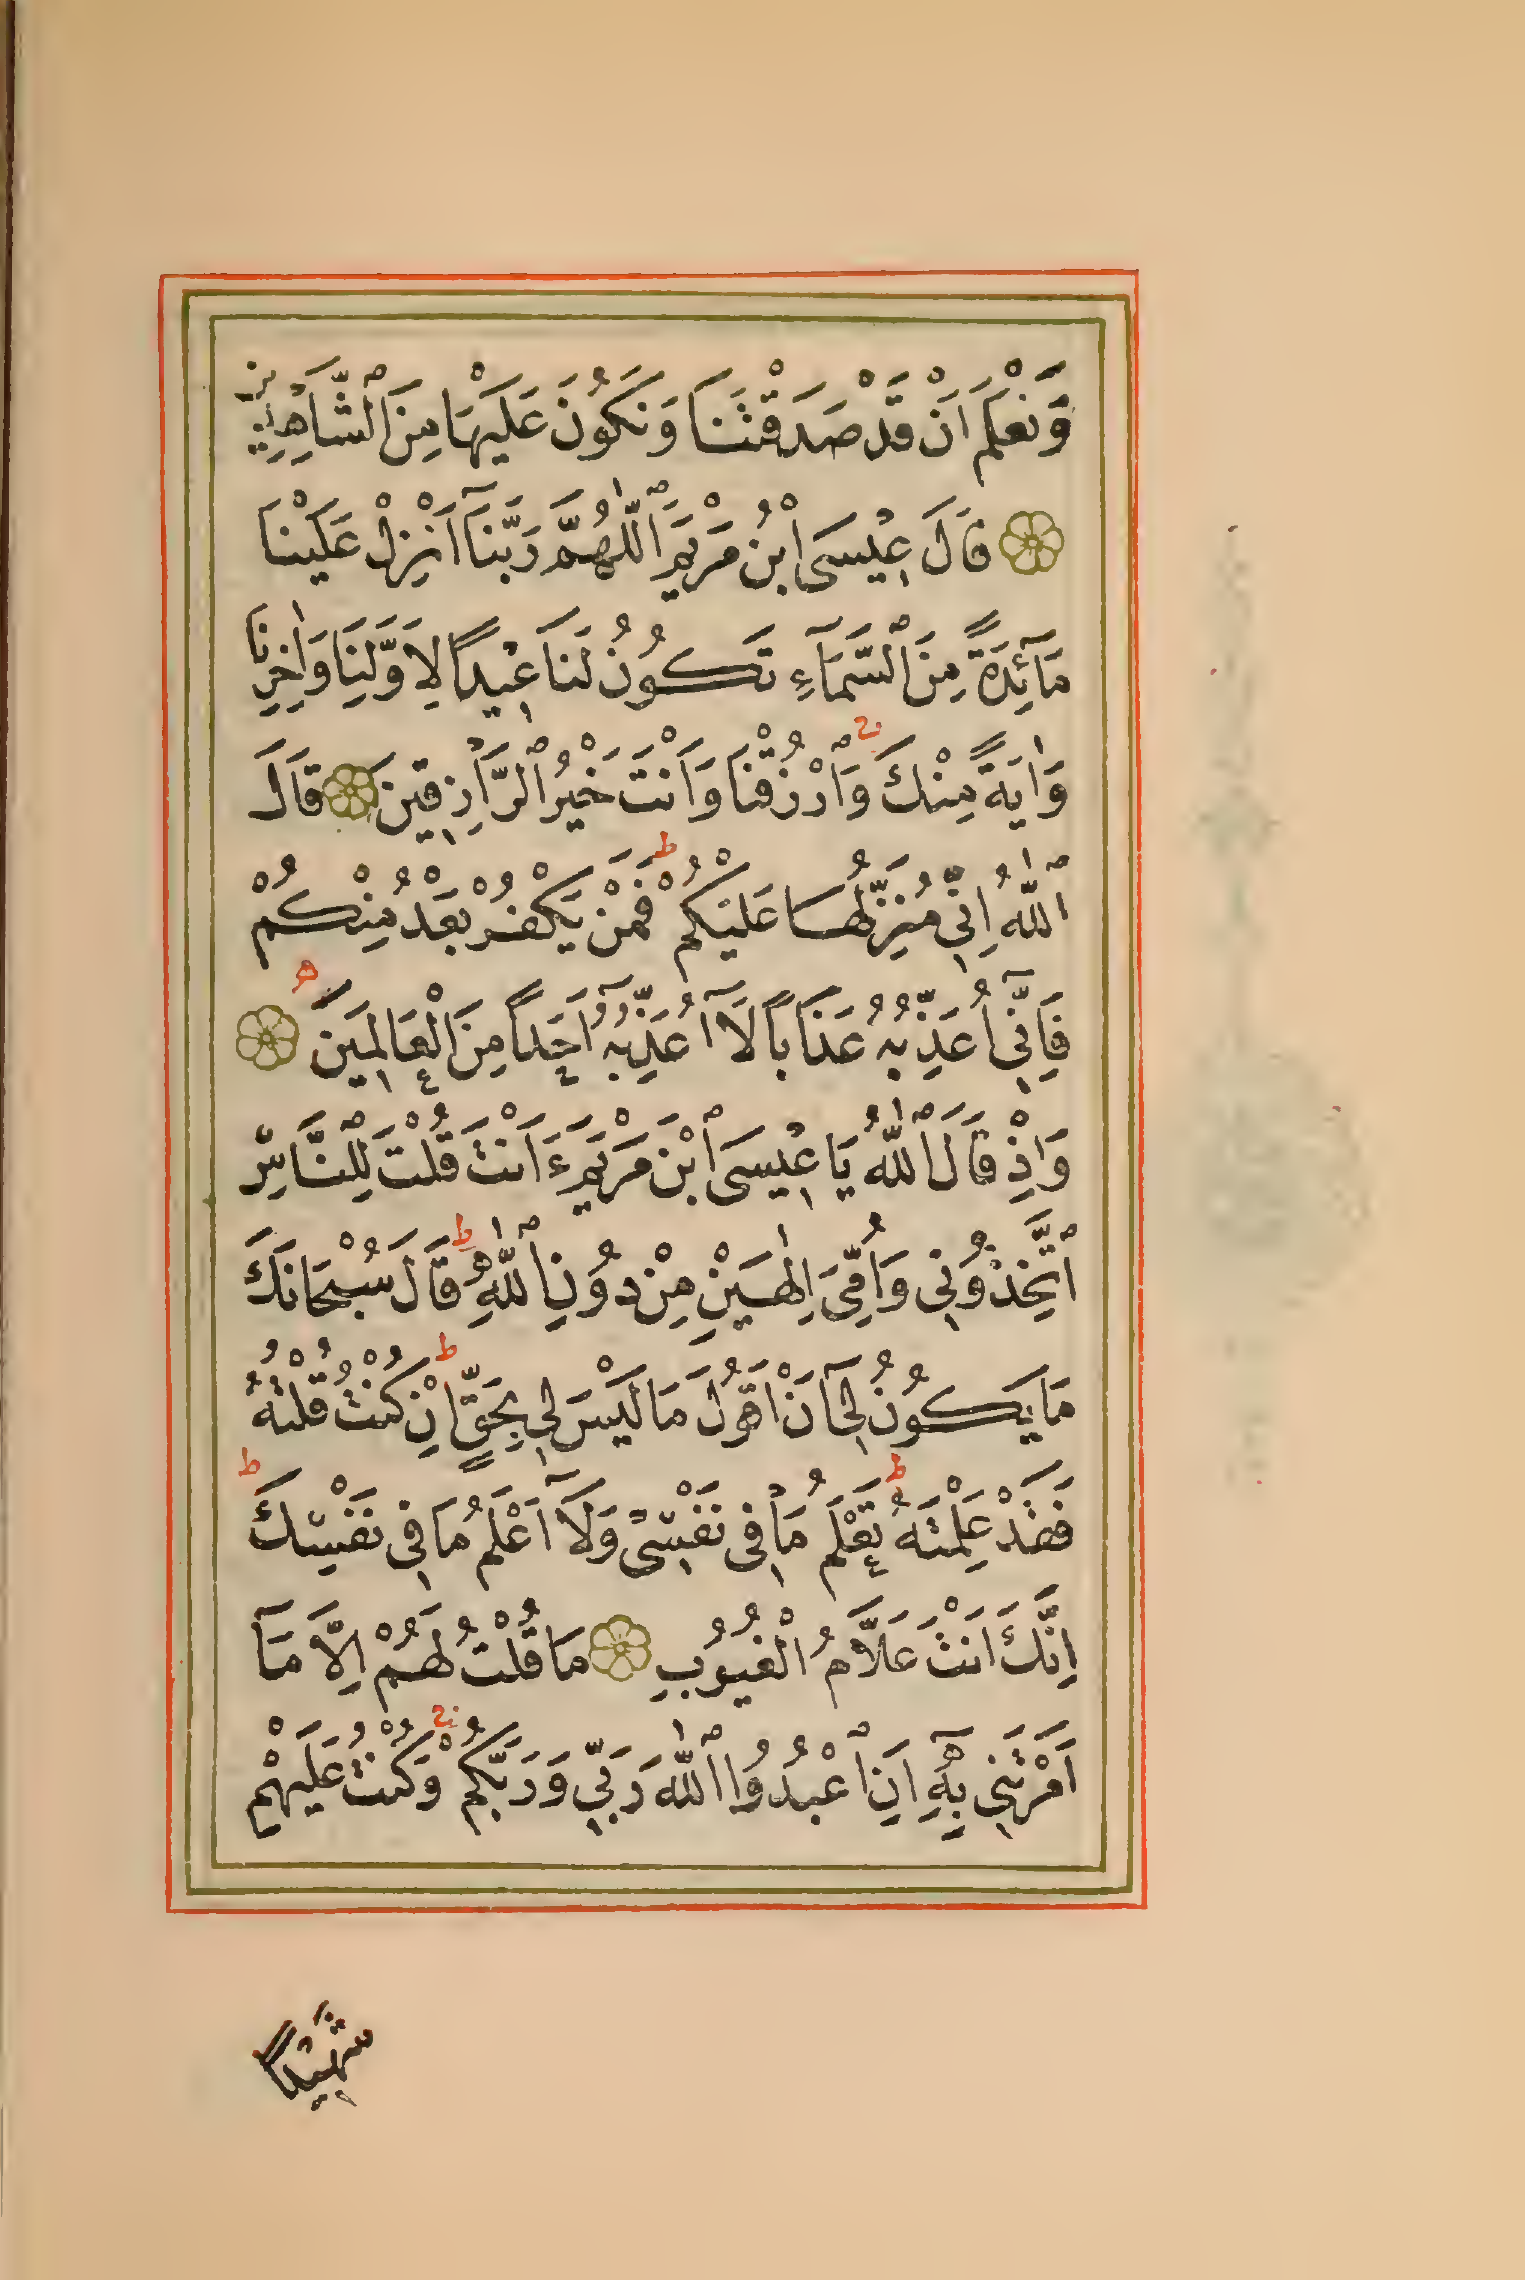 وَنَعْلَمَ اَنْ قَدْ صَدَقْتَنَا وَنَكُونَ عَلَيْهَا مِنَ ٱلشَّاهِدِينَ
قَالَ عِيْسَى ابْنُ مَرْيَمَ ٱللّٰهُمَّ رَبَّنَآ اَنْزِلْ عَلَيْنَا
مَآئِدَةً مِنَ ٱلسَّمَآءِ تَكُونُ لَنَا عِيْدًا لِاَوَّلِنَا وَاٰخِرِنَا
وَاٰيَةً مِنْكَ ج وَٱرْزُقْنَا وَاَنْتَ خَيْرُ ٱلرَّازِقِينَ قَالَ
ٱللّٰهُ اِنِّي مُنَزِّلُهَا عَلَيْكُمْ ط فَمَنْ يَكْفُرْ بَعْدُ مِنْكُمْ
فَاِنِّٓي اُعَذِّبُهُ عَذَابًا لَآ اُعَذِّبُهُٓ اَحَدًا مِنَ ٱلْعَالَمِينَ ه
وَاِذْ قَالَ ٱللّٰهُ يَا عِيْسَى ٱبْنَ مَرْيَمَ ءَاَنْتَ قُلْتَ لِلنَّاسِ
ٱتَّخِذُوْنِي وَاُمِّيَ اِلٰهَيْنِ مِنْ دُوْنِ ٱللّٰهِ ط قَالَ سُبْحَانَكَ
مَا يَكُونُ لِيٓ اَنْ اَقُولَ مَا لَيْسَ لِي بِحَقٍّ ط اِنْ كُنْتُ قُلْتُهُ
فَقَدْ عَلِمْتَهُ ط تَعْلَمُ مَا فِي نَفْسِيْ وَلَآ اَعْلَمُ مَا فِي نَفْسِكَ ط
اِنَّكَ اَنْتَ عَلَّامُ الْغُيُوْبِ مَا قُلْتُ لَهُمْ اِلَّا مَآ
اَمَرْتَنِي بِهِٓ اَنِ ٱعْبُدُوا ٱللّٰهَ رَبِّي وَرَبَّكُمْ ج وَكُنْتُ عَلَيْهِمْ
شَهِيْدًا